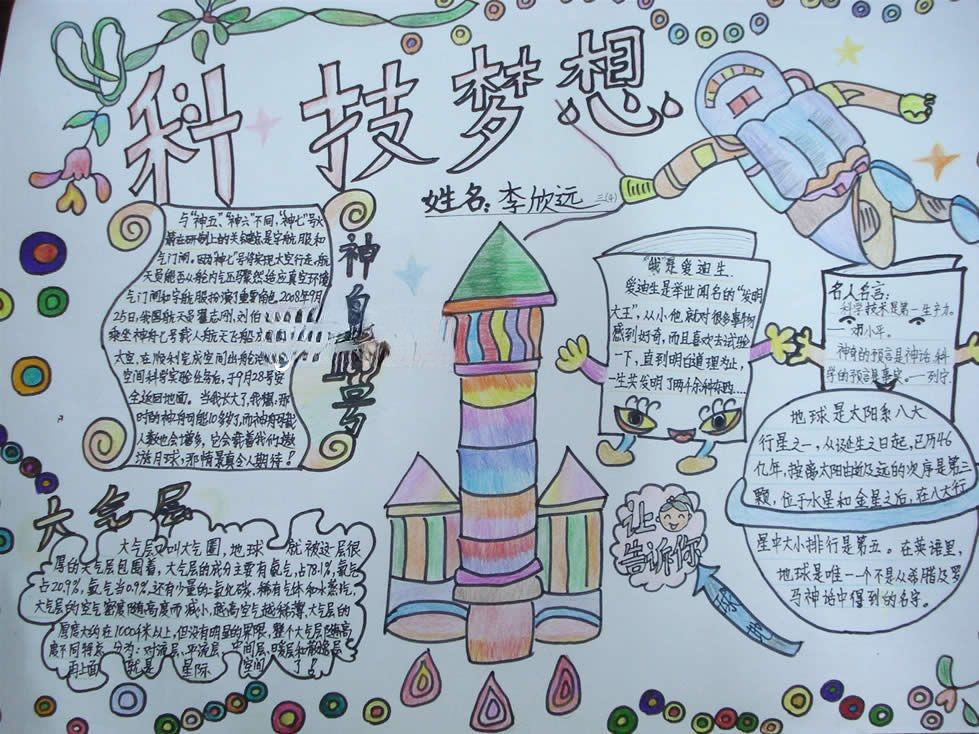 科技梦想
姓名：李欣远 三(4)
神
号
与“神五”、“神六”不同，“神七”号火
箭在研制上的关键还是宇航服和
气门闸。因为神七号将实现太空行走，航
天员能否从轮的气压骤然适应真空环境
气门闸和宇航服扮演了重要角色。2008年9月
25日，我国航天员翟志刚，刘伯
乘坐神舟七号载人航天飞船
太空，在顺利完成空间出舱活
空间科学实验任务后，于9月28号安
全返回地面。当我长大了，我想，那
时的神舟可能10多岁了，而神舟号载
人数也会增多，它会载着我们遨
游月球，那情景真令人期待！
“我”是爱迪生
爱迪生是举世闻名的“发明
大王”，从小他就对很多事物
感到好奇，而且喜欢去试验
一下，直到明白道理为止，
一生共发明了两千余种东西……
名人名言：
科学技术是第一生产力。
——邓小平。
神奇的预言是神话，科
学的预言是事实。——列宁.
地球是太阳系八大
行星之一，从诞生之日起，已历46
亿年，按离太阳由近及远的次序是第三
颗，位于水星和金星之后，在八大行
星中大小排行是第五。在英语里，
地球是唯一一个不是从希腊及罗
马神话中得到的名字。
让
告诉你
大气层
大气层又叫大气圈，地球就被这层很
厚的大气层包围着，大气层的成分主要有氮气，占78.1%，氧气
占20.9%，氩气占0.9%，还有少量的二氧化碳，稀有气体和水蒸汽，
大气层的空气密度随高度而减小，越高空气越稀薄，大气层的
厚度大约在1000千米以上，但没有明显的界限，整个大气层随高
度不同特点 分为：对流层、平流层、中间层、暖层和散逸层，
再上面 就是 星际 空间 了！